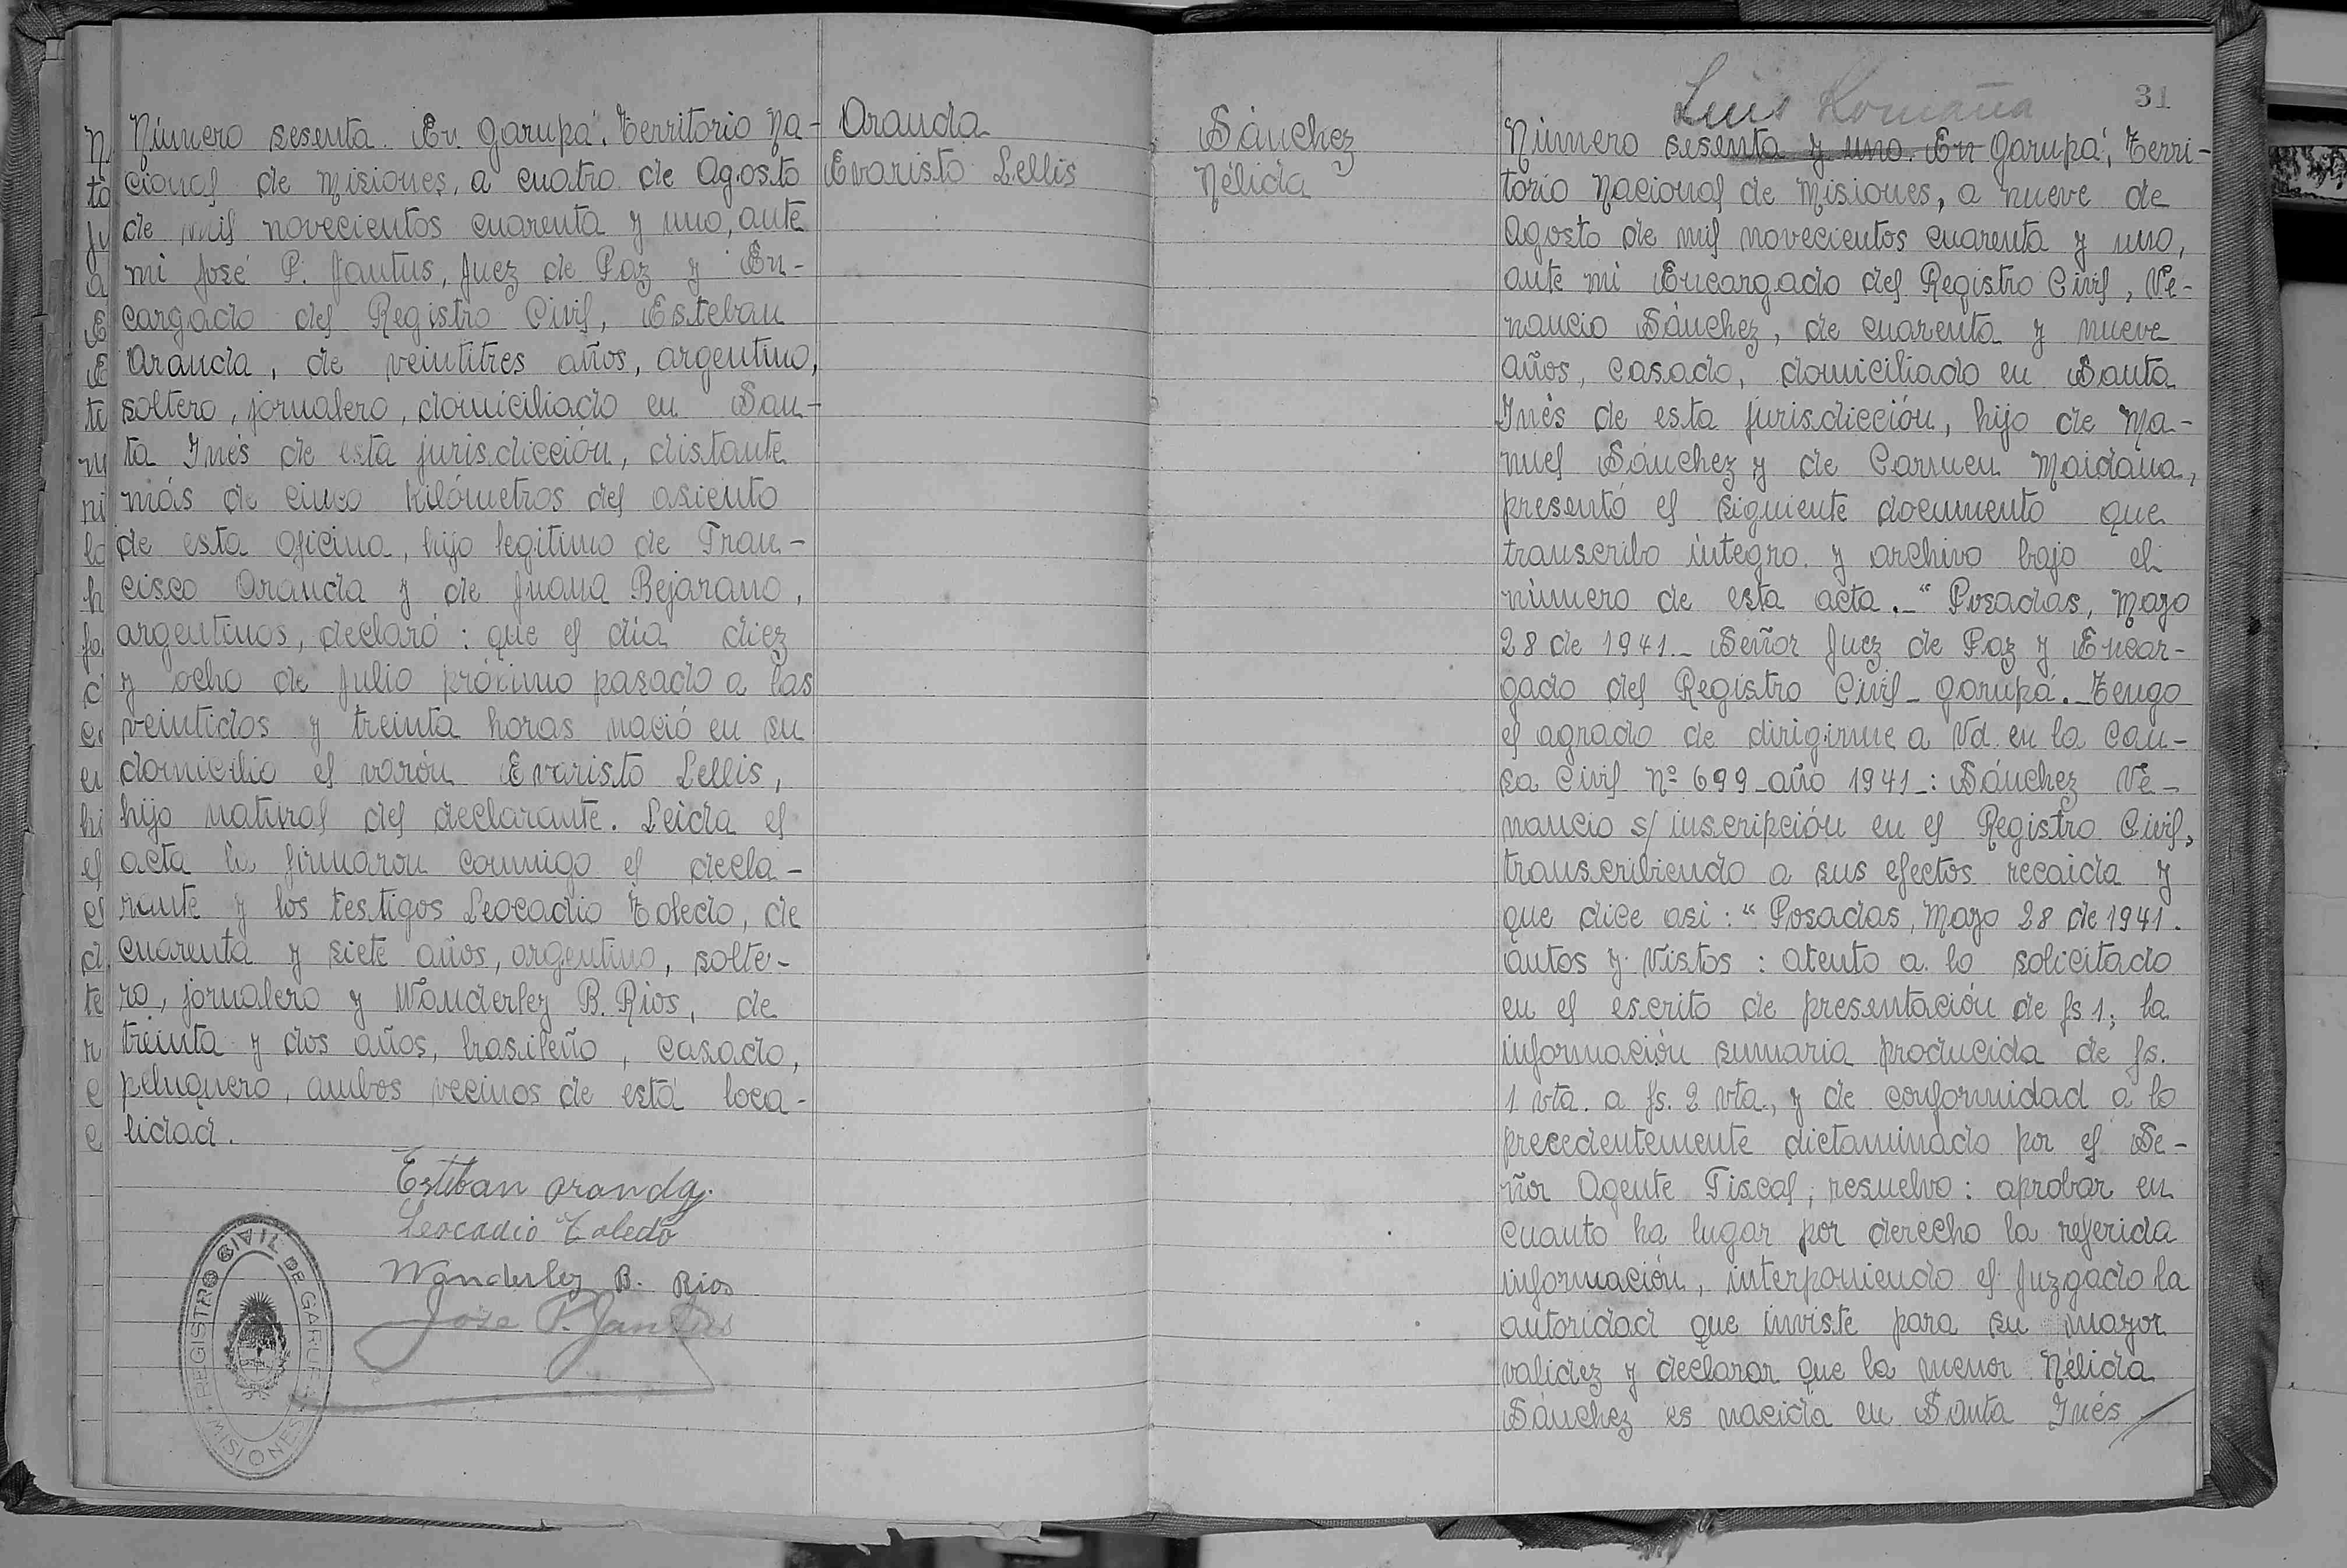 Número sesenta. En Garupá, Territorio Na-
cional de Misiones, a cuatro de Agosto
de mil novecientos cuarenta y uno, ante
mi José P. Jantus, Juez de Paz y En-
cargado del Registro Civil, Esteban
Aranda, de veintitres años, argentino,
soltero, jornalero, domiciliado en San-
ta Inés de esta jurisdicción, distante
más de cinco Kilómetros del asiento
de esta oficina, hijo legitimo de Fran-
cisco Aranda y de Juana Bejarano,
argentinos, declaró: que el día diez
y ocho de Julio próximo pasado a las
veintidos y treinta horas nació en su
domicilio el varón Evaristo Lellis,
hijo natural del declarante. Leida el
acta la firmaron conmigo el decla-
rante y los testigos Leocadio Toledo, de
cuarenta y siete años, argentino, solte-
ro, jornalero y Wanderley B. Rios, de
treinta y dos años, brasileño, casado,
peluquero, ambos vecinos de está loca-
lidad.
Esteban Aranda.
Leocadio Toledo
Wanderley B. Rios
Jose P. Jantus
REGISTRO CIVIL DE GARUPÁ
MISIONES
Aranda
Evaristo Lellis
Sánchez
Nélida
Luis Romaña
31
Número sesenta y uno. En Garupá, Terri-
torio Nacional de Misiones, a nueve de
Agosto de mil novecientos cuarenta y uno,
ante mi Encargado del Registro Civil, Ve-
nancio Sánchez, de cuarenta y nueve
años, casado, domiciliado en Santa
Inés de esta jurisdicción, hijo de Ma-
nuel Sánchez y de Carmen Maidana,
presentó el siguiente documento que
transcribo integro y archivo bajo el
número de esta acta._ "Posadas, Mayo
28 de 1941._ Señor Juez de Paz y Encar-
gado del Registro Civil_ Garupá._ Tengo
el agrado de dirigirme a Vd. en la Cau-
sa Civil Nº 699_año 1941_: Sánchez Ve-
nancio s/ inscripción en el Registro Civil,
transcribiendo a sus efectos recaida y
que dice asi: "Posadas, Mayo 28 de 1941.
autos y vistos: atento a lo solicitado
en el escrito de presentación de fs 1; la
información sumaria producida de fs.
1 vta. a fs. 2 vta., y de conformidad a lo
precedentemente dictaminado por el Se-
ñor Agente Fiscal; resuelvo: aprobar en
cuanto ha lugar por derecho la referida
información, interponiendo el Juzgado la
autoridad que inviste para su mayor
validez y declarar que la menor Nélida
Sánchez es nacida en Santa Inés